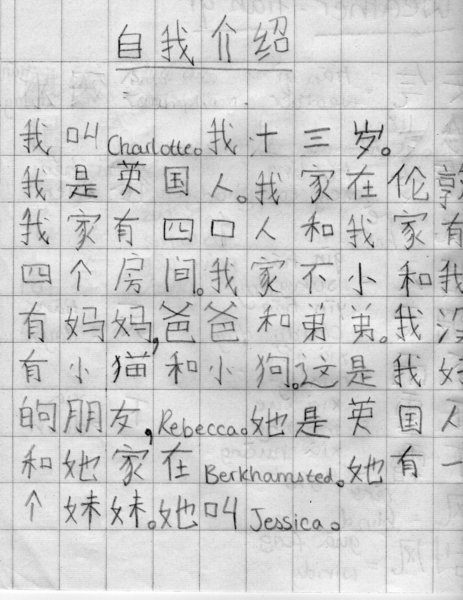 自我介绍
我叫Charlotte。我十三岁。
我是英国人。我家在伦敦
我家有四口人和我家有
四个房间。我家不小和我
有妈妈,爸爸和弟弟。我没
有小猫和小狗。这是我好
的朋友,Rebecca。她是英国人
和她家在Berkhamsted。她有一
个妹妹。她叫Jessica。